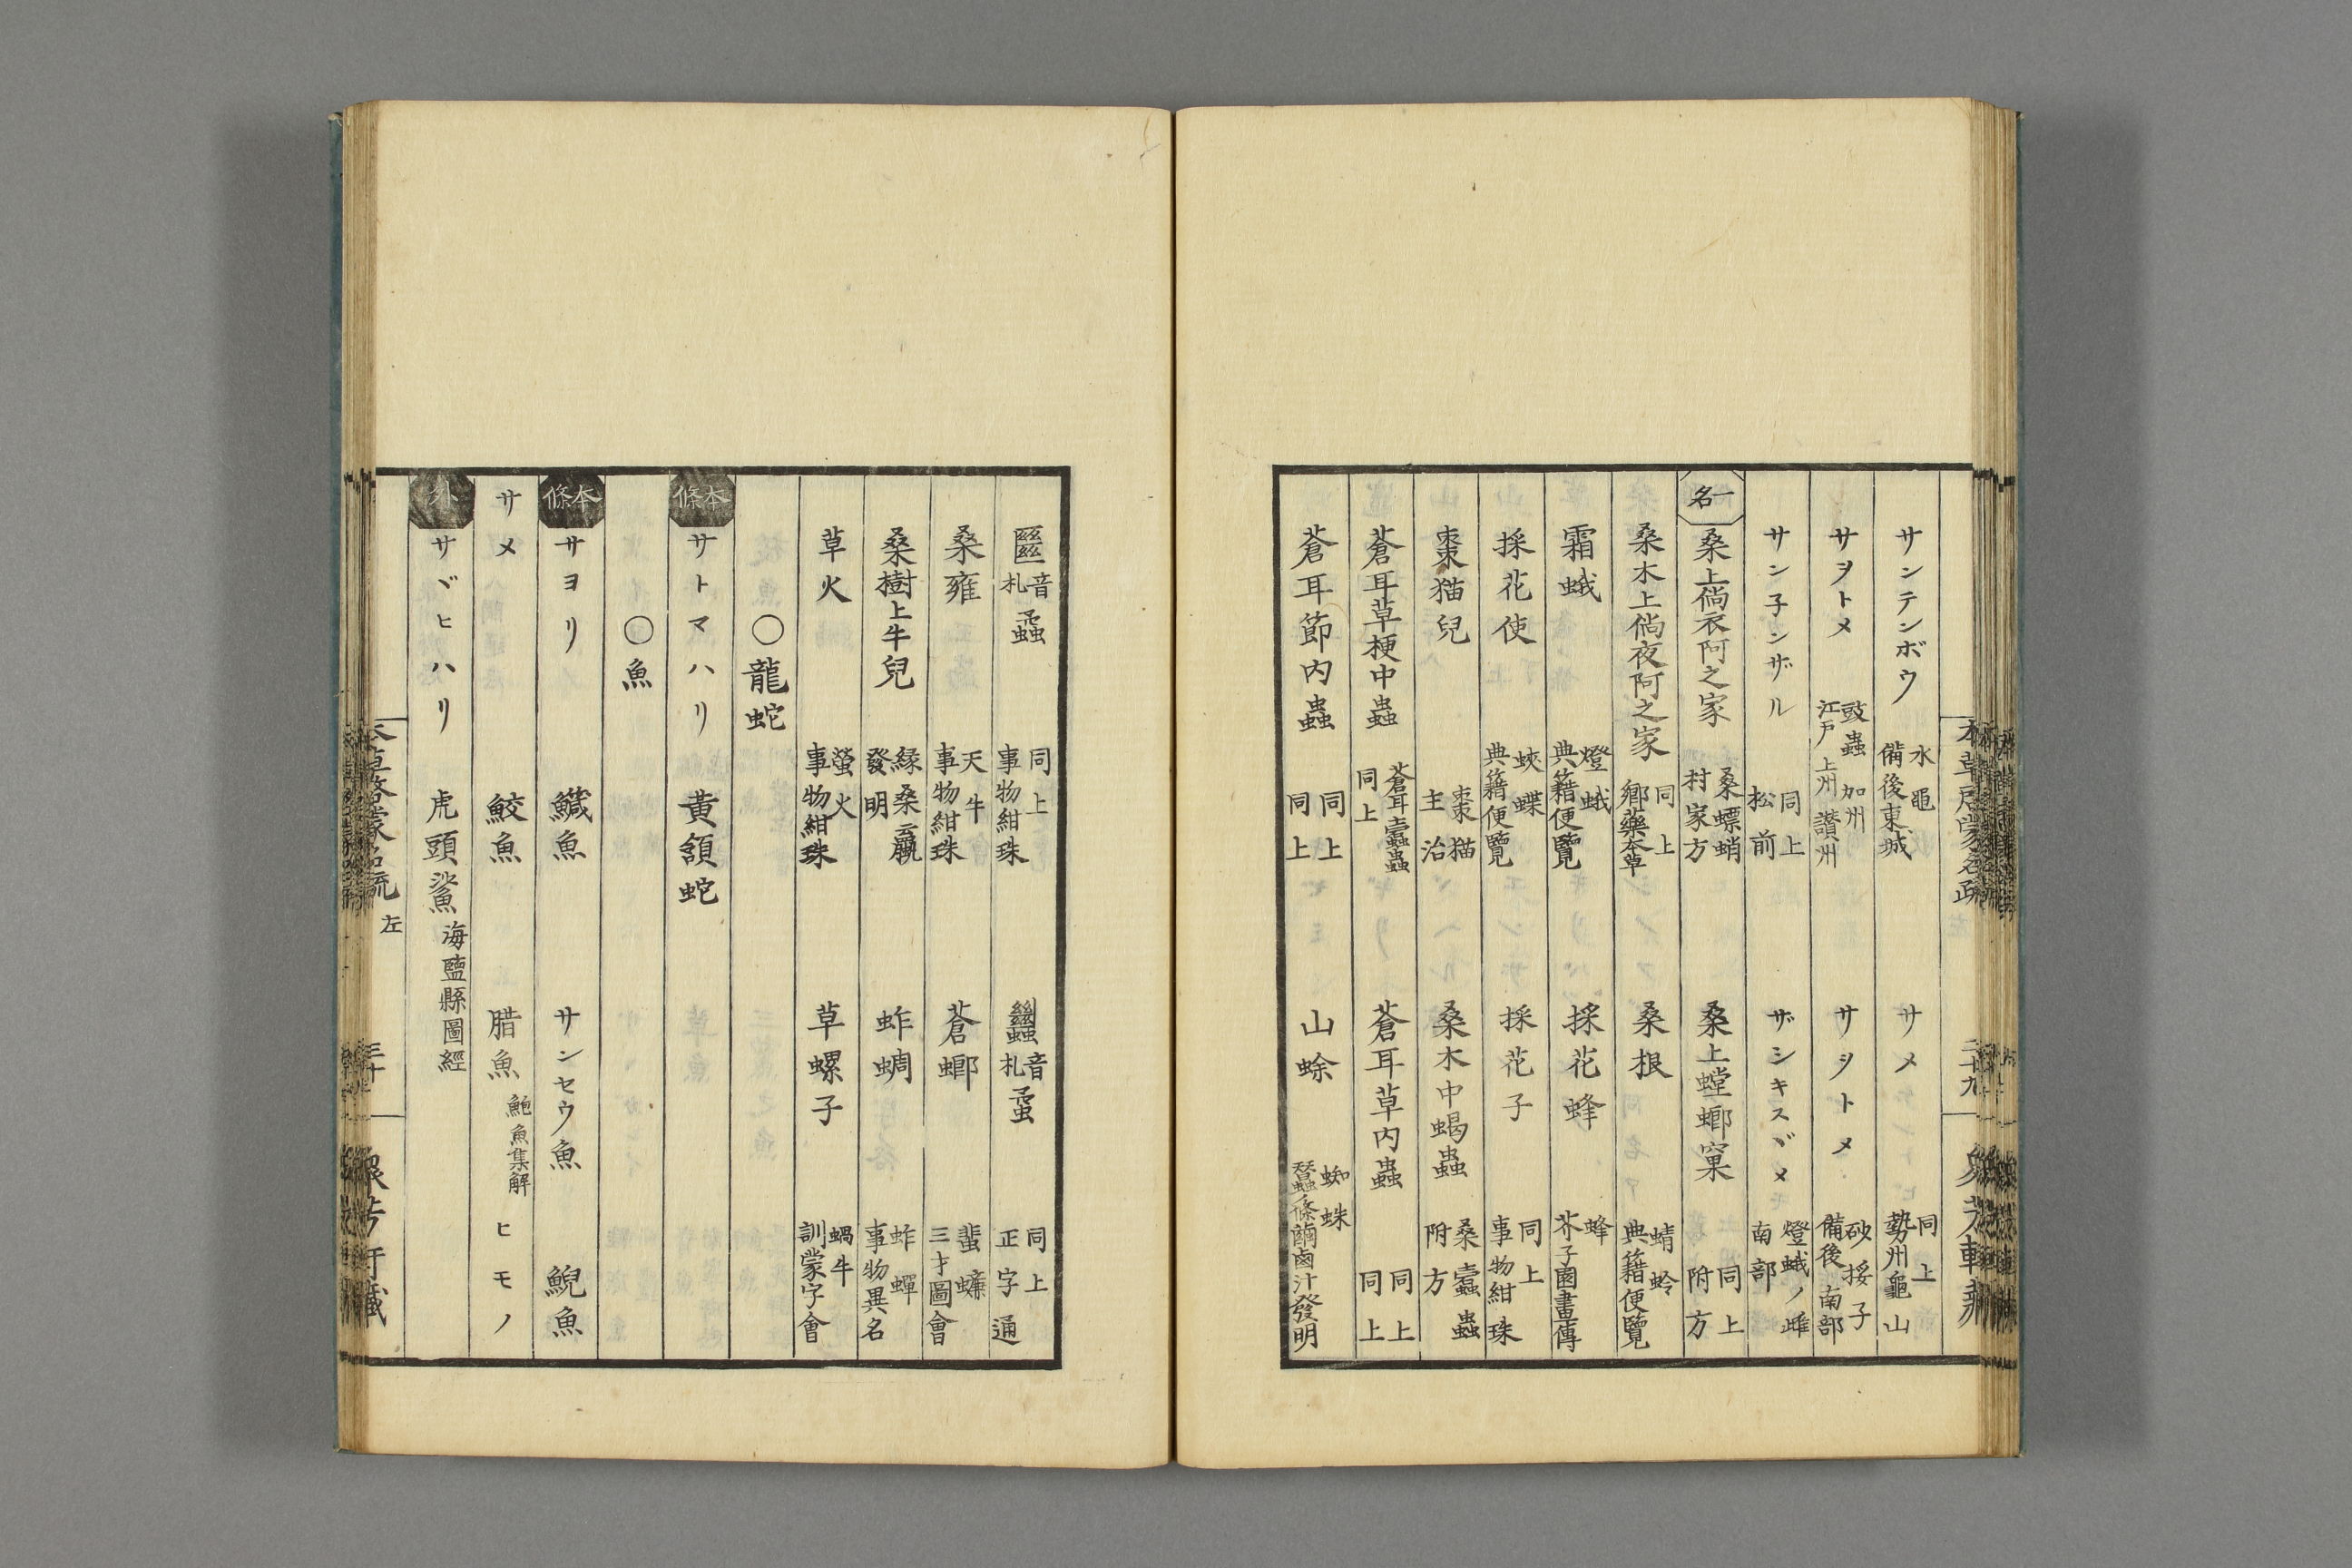 サンテンボウ 水黽 備後東城 サメ 同上 勢州龜山
サヲトメ 豉蟲 加州 江戸 上州 讚州 サヲトメ 砂挼子 備後 南部
サン子ンザル 同上 松前 ザシキスヾメ 燈蛾ノ雌 南部
一名 桑上倘衣阿之家 桑螵蛸 村家方 桑上螳螂窠 同上 附方
桑木上倘夜阿之家 同上 鄉藥本草 桑根 蜻蛉 典籍便覽
霜蛾 燈蛾 典籍便覽 採花蜂 蜂 芥子園畫傳
採花使 蛺蝶 典籍便覽 採花子 同上 事物紺珠
棗猫兒 棗猫 主治 桑木中蝎蟲 桑蠹蟲 附方
蒼耳草梗中蟲 蒼耳蠹蟲 同上 蒼耳草内蟲 同上 同上
蒼耳節内蟲 同上 同上 山蜍 蜘蛛 蠶條繭鹵汁發明
音札 蟊 同上 事物紺珠 音札 蟊 同上 正字通
桑雍 天牛 事物紺珠 蒼螂 蜚蠊 三才圖會
桑樹上牛兒 緣桑蠃 發明 蚱蜩 蚱蟬 事物異名
草火 螢火 事物紺珠 草螺子 蝸牛 訓蒙字會
〇龍蛇
本條 サトマハリ 黃頷蛇
〇魚
本條 サヨリ 鱵魚 サンセウ魚 鯢魚
サメ 鮫魚 腊魚 鮑魚集解 ヒモノ
外 サヾヒハリ 虎頭鯊 海鹽縣圖經
左